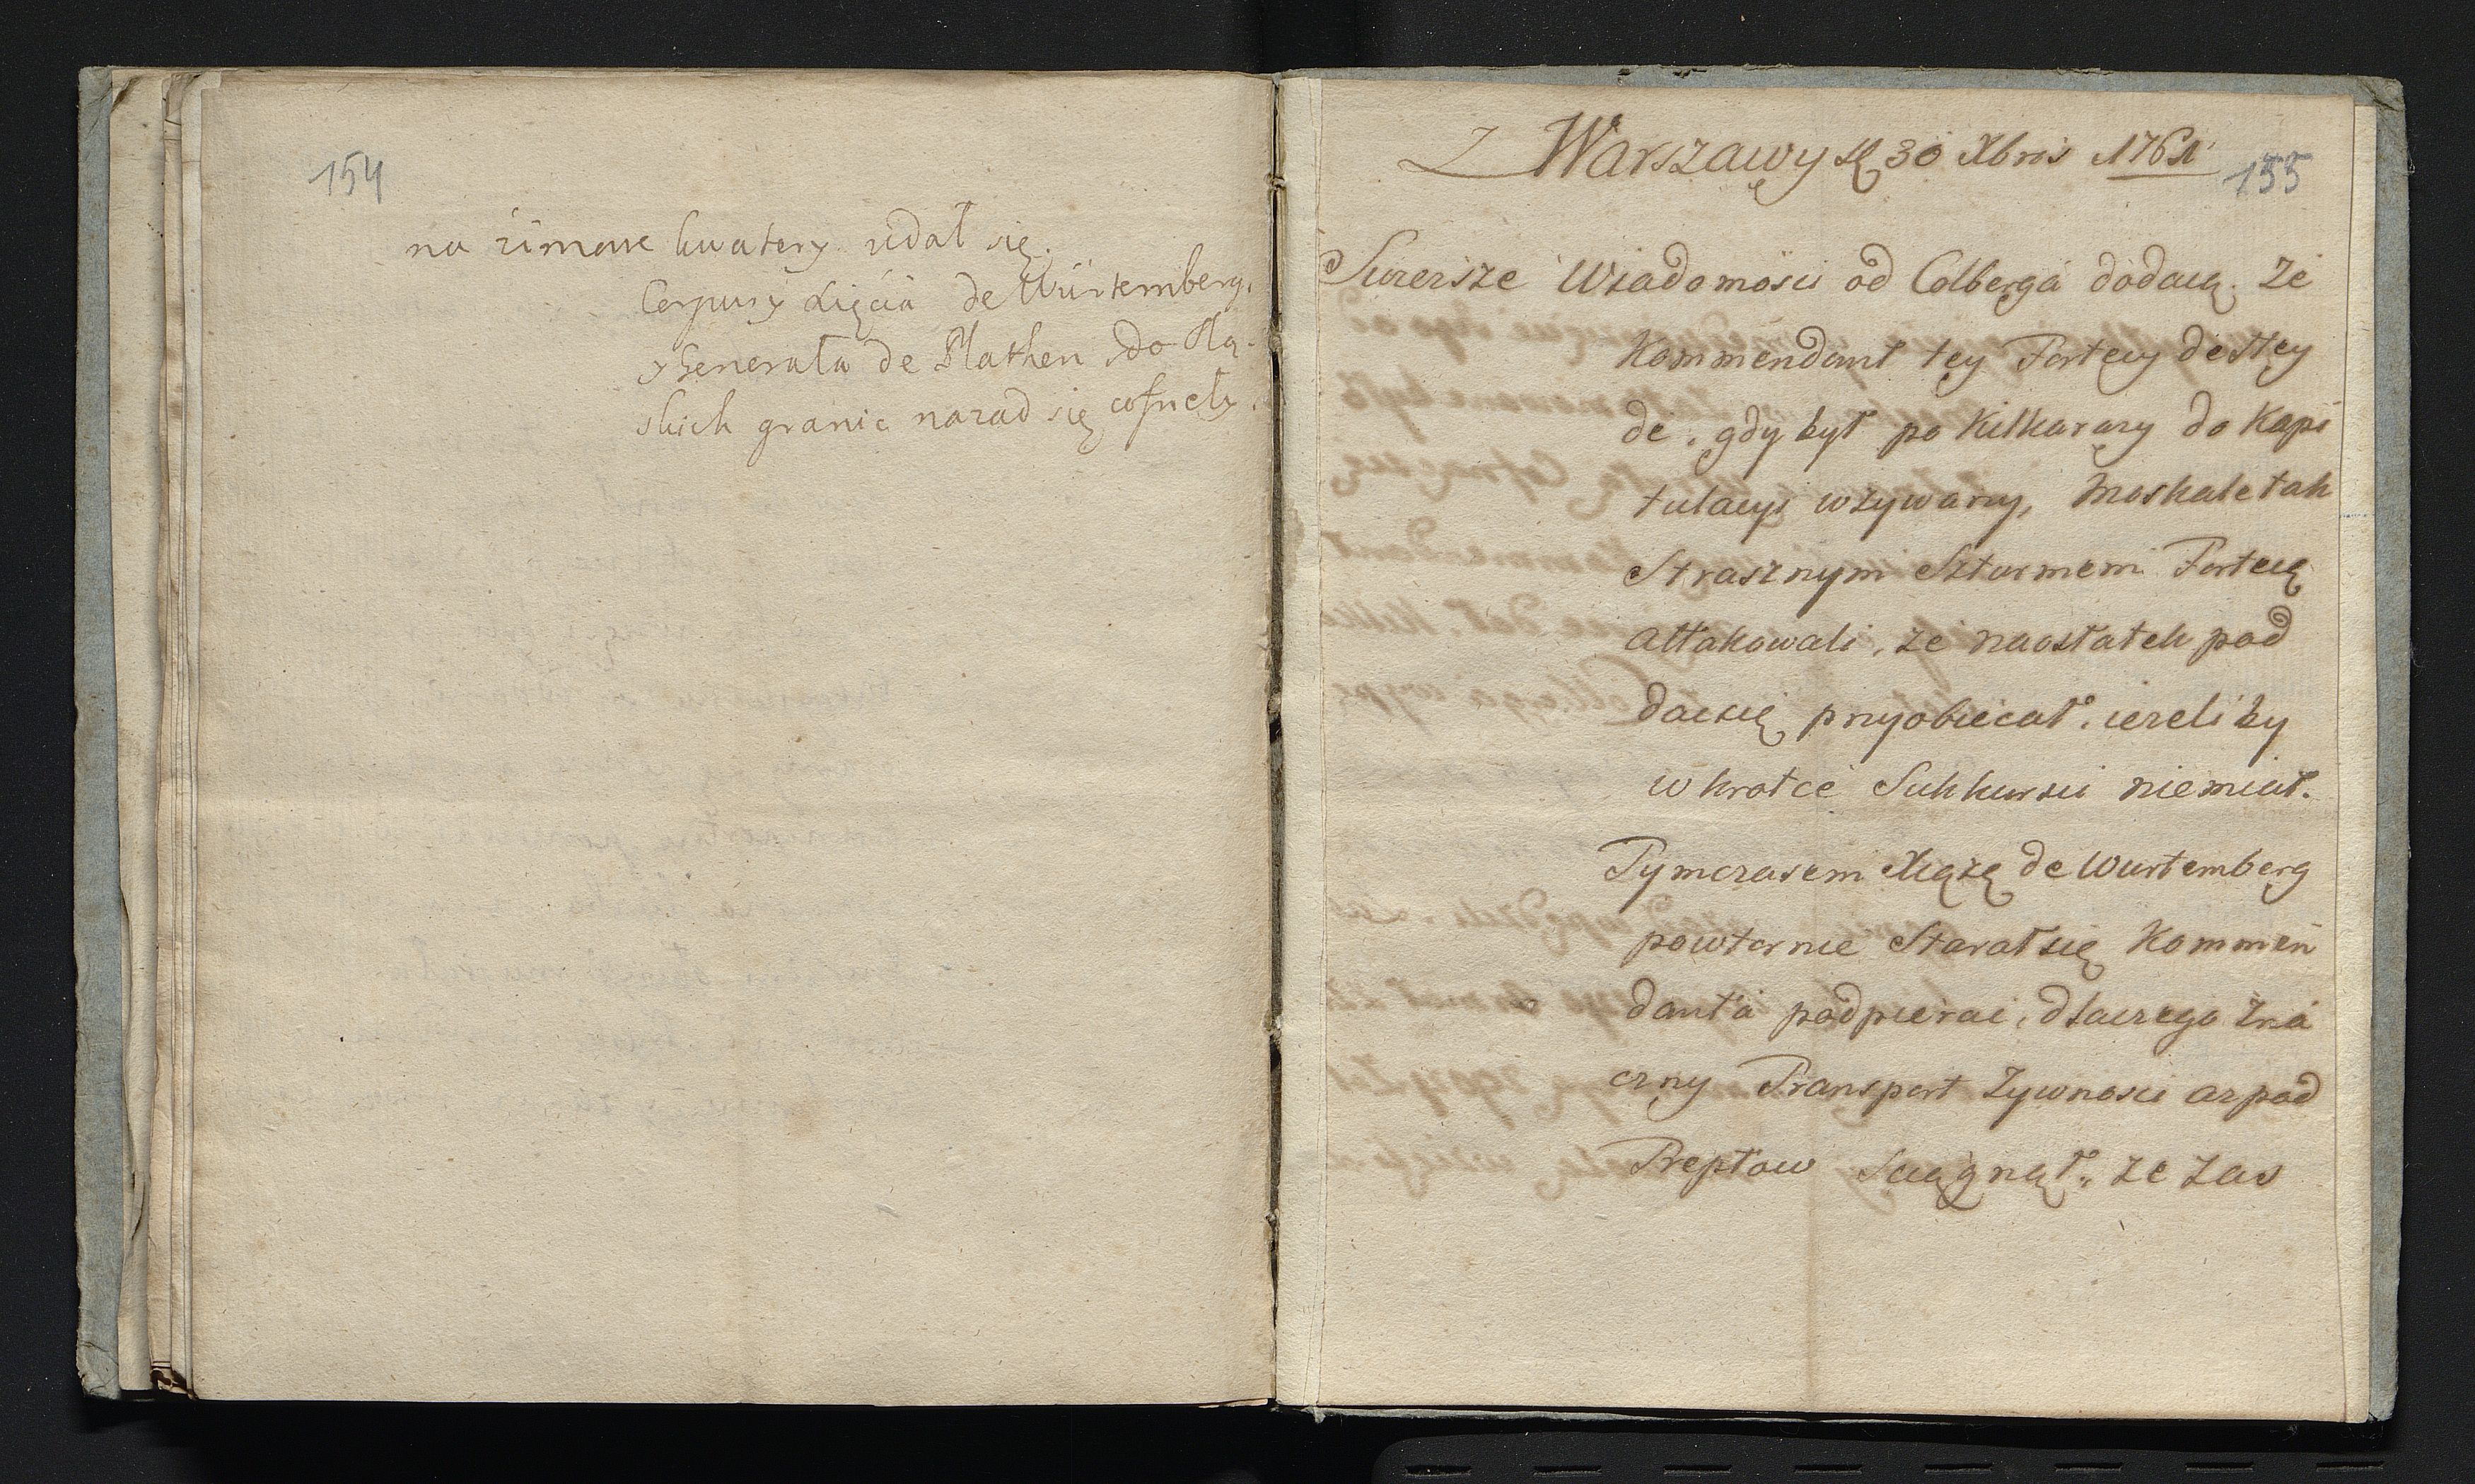 154
na zimowe kwatery udał się.
Corpusy Xięcia de Würtemberg,
y Generała de Plathen do Plą-
skich granic nazad się cofneły.
Z Warszawy d 30 Xbris 1761
155
Swiersze Wiadomosci od Colberga dodaią. Że
Kommendant tey Fortecy de Hey
de, gdy był po kilka razy do Kapi
tulacyi wzywany, Moskale tak
Strasznym Szturmem Fortecę
attakowali, że naostatek pod
dac się przyobiecał, ieżeliby
w krotce Sukkursu niemiał.
Tymczasem Xiążę de Wurtemberg
powtornie Starał się Kommen
danta podpierac, dlaczego Zna
czny Transport Zywnosci az pod
Treptow Sciągnął, ze zas